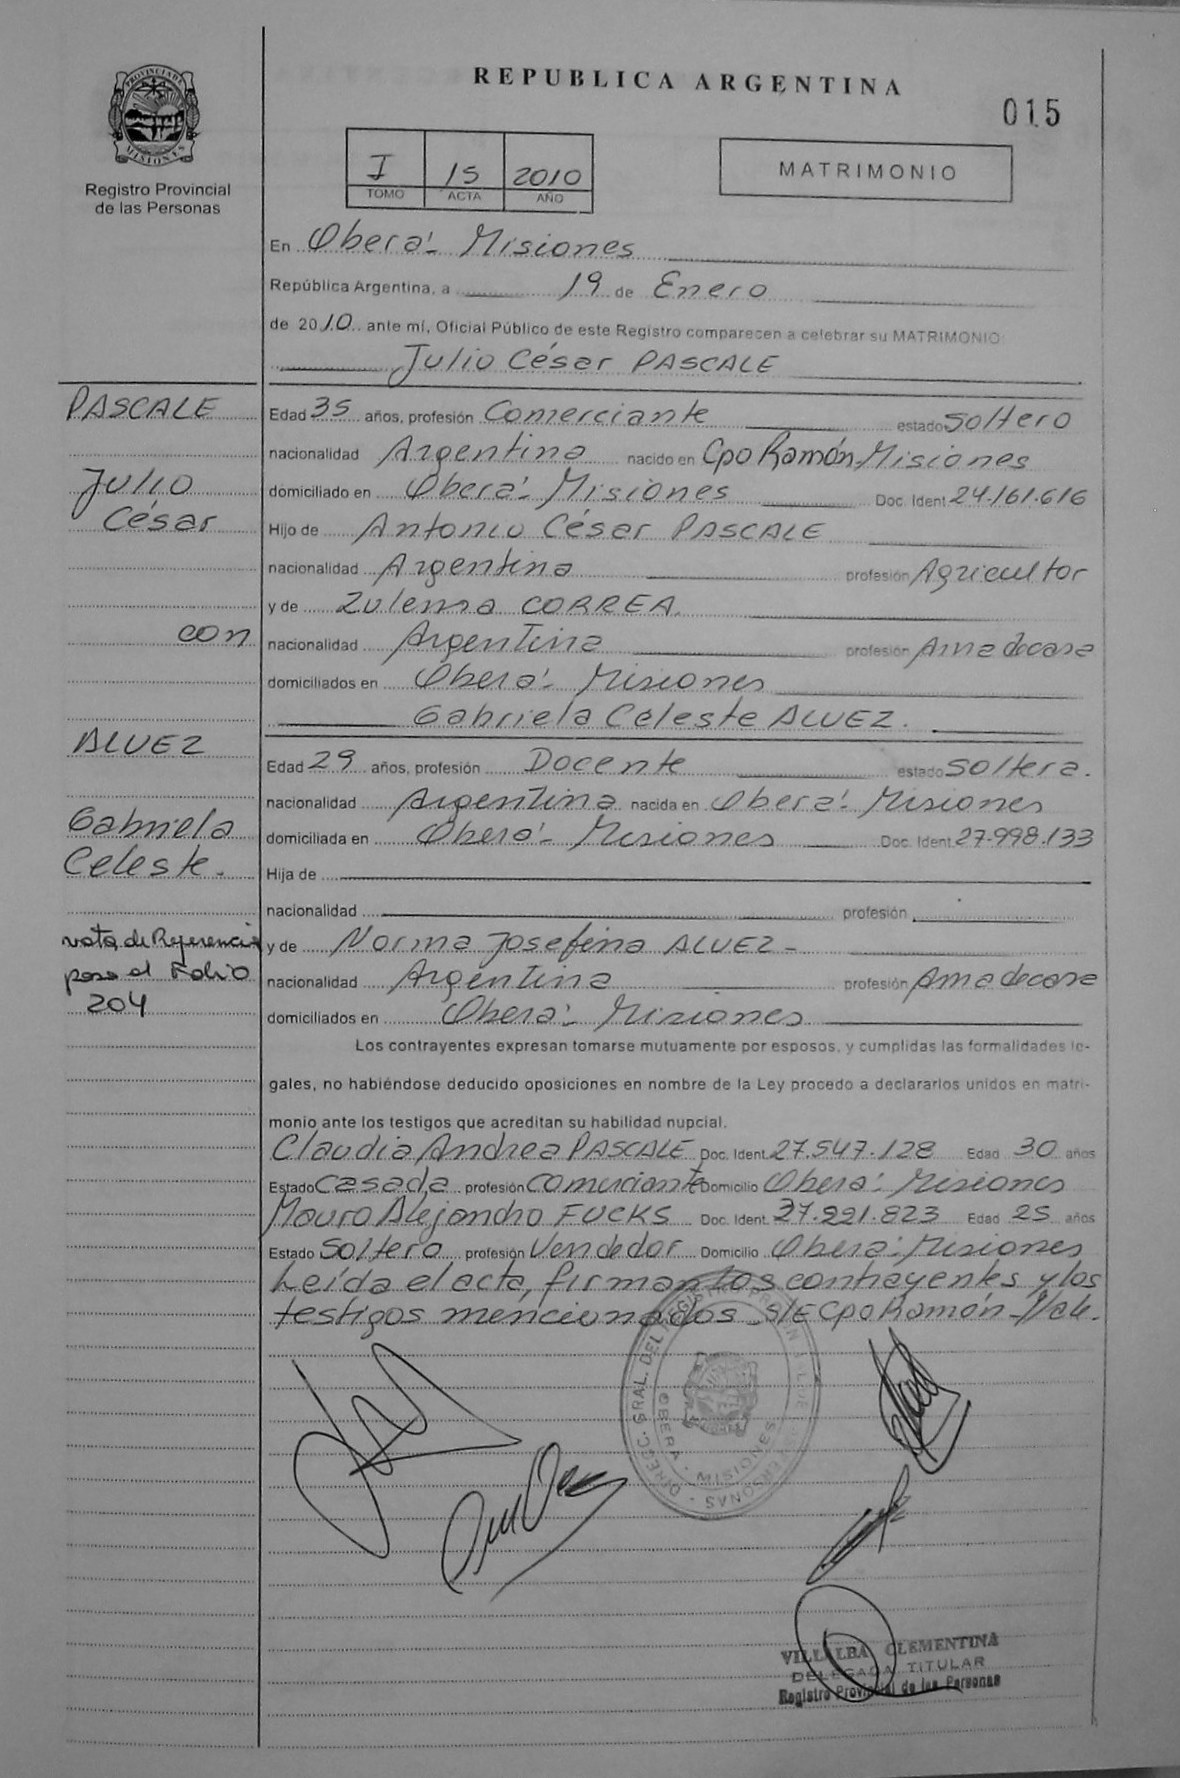 REPUBLICA ARGENTINA
015
PROVINCIA DE MISIONES
Registro Provincial
de las Personas
I 15 2010
TOMO ACTA AÑO
MATRIMONIO
En Oberá - Misiones
República Argentina, a 19 de Enero
de 2010 ante mí, Oficial Público de este Registro comparecen a celebrar su MATRIMONIO:
Julio César PASCALE
PASCALE
Julio
César
con
ALVEZ
Gabriela
Celeste.
nota de Referencia
pasa al Folio
204
Edad 35 años, profesión Comerciante estado soltero
nacionalidad Argentina nacido en Cpo Ramón Misiones
domiciliado en Oberá - Misiones Doc. Ident. 24.161.616
Hijo de Antonio César PASCALE
nacionalidad Argentina profesión Agricultor
y de Zulema CORREA.
nacionalidad Argentina profesión Ama de casa
domiciliados en Oberá - Misiones
Gabriela Celeste ALVEZ.
Edad 29 años, profesión Docente estado soltera.
nacionalidad Argentina nacida en Oberá - Misiones
domiciliada en Oberá - Misiones Doc. Ident. 27.998.133
Hija de
nacionalidad profesión
y de Norma Josefina ALVEZ -
nacionalidad Argentina profesión Ama de casa
domiciliados en Oberá - Misiones
Los contrayentes expresan tomarse mutuamente por esposos, y cumplidas las formalidades le-
gales, no habiéndose deducido oposiciones en nombre de la Ley procedo a declararlos unidos en matri-
monio ante los testigos que acreditan su habilidad nupcial.
Claudia Andrea PASCALE Doc. Ident. 27.547.128 Edad 30 años
Estado Casada profesión Comerciante Domicilio Oberá - Misiones
Mauro Alejandro FUCKS Doc. Ident. 37.221.823 Edad 25 años
Estado Soltero profesión Vendedor Domicilio Oberá - Misiones
Leída el acta, firman los contrayentes y los
testigos mencionados S/E Cpo Ramón - Vale.
OBERA - MISIONES
VILLALBA CLEMENTINA
DELEGADA TITULAR
Registro Provincial de las Personas